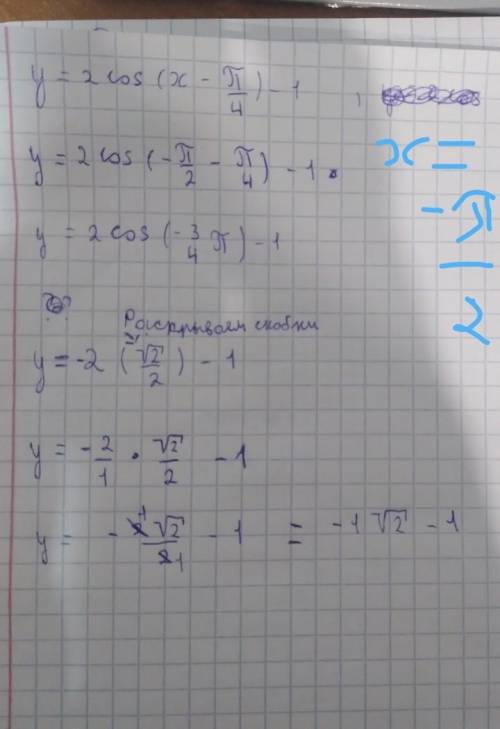 y = 2 cos (x - π/4) - 1 ,
x = -π/2
y = 2 cos (-π/2 - π/4) - 1.
y = 2 cos (-3/4 π) - 1
Раскрываем скобки
y = -2 (√2/2) - 1
y = -2/1 · √2/2 - 1
y = - 2 1 √2 / 2 1 - 1 = -1√2 - 1